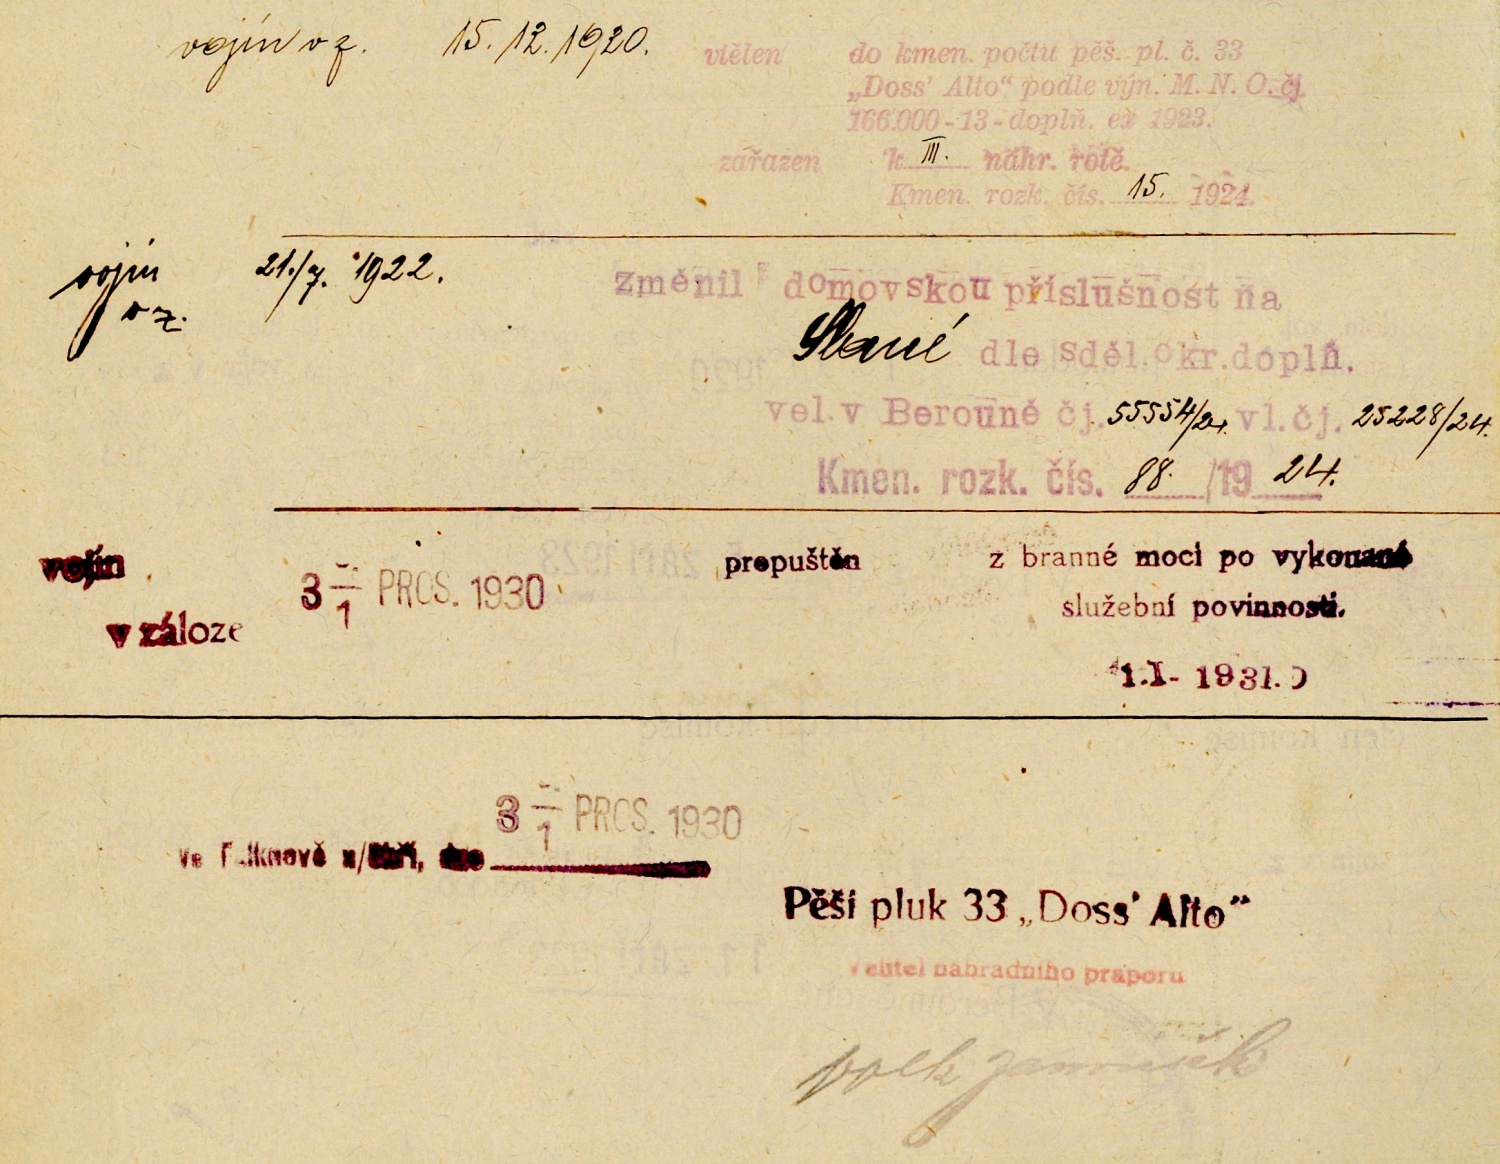 vojín v z. 15. 12. 1920. vtělen do kmen. počtu pěš. pl. č. 33
„Doss' Alto“ podle výn. M. N. O. čj.
166.000-13-doplň. ex 1923.
zařazen k III. náhr. rotě.
Kmen. rozk. čís. 15. 1924.
vojín 21./7. 1922. změnil domovskou příslušnost na
v z. Slané dle sděl. okr. doplň.
vel. v Berouně čj. 55554/24. vl. čj. 25228/24.
Kmen. rozk. čís. 88. /19 24.
vojín propuštěn z branné moci po vykonané
v záloze 3 1/1 PROS. 1930 služební povinnosti.
1.I- 1931.
3 1/1 PROS. 1930
Ve Falknově n/Ohří, dne
Pěší pluk 33 „Doss' Alto“
Velitel náhradního praporu